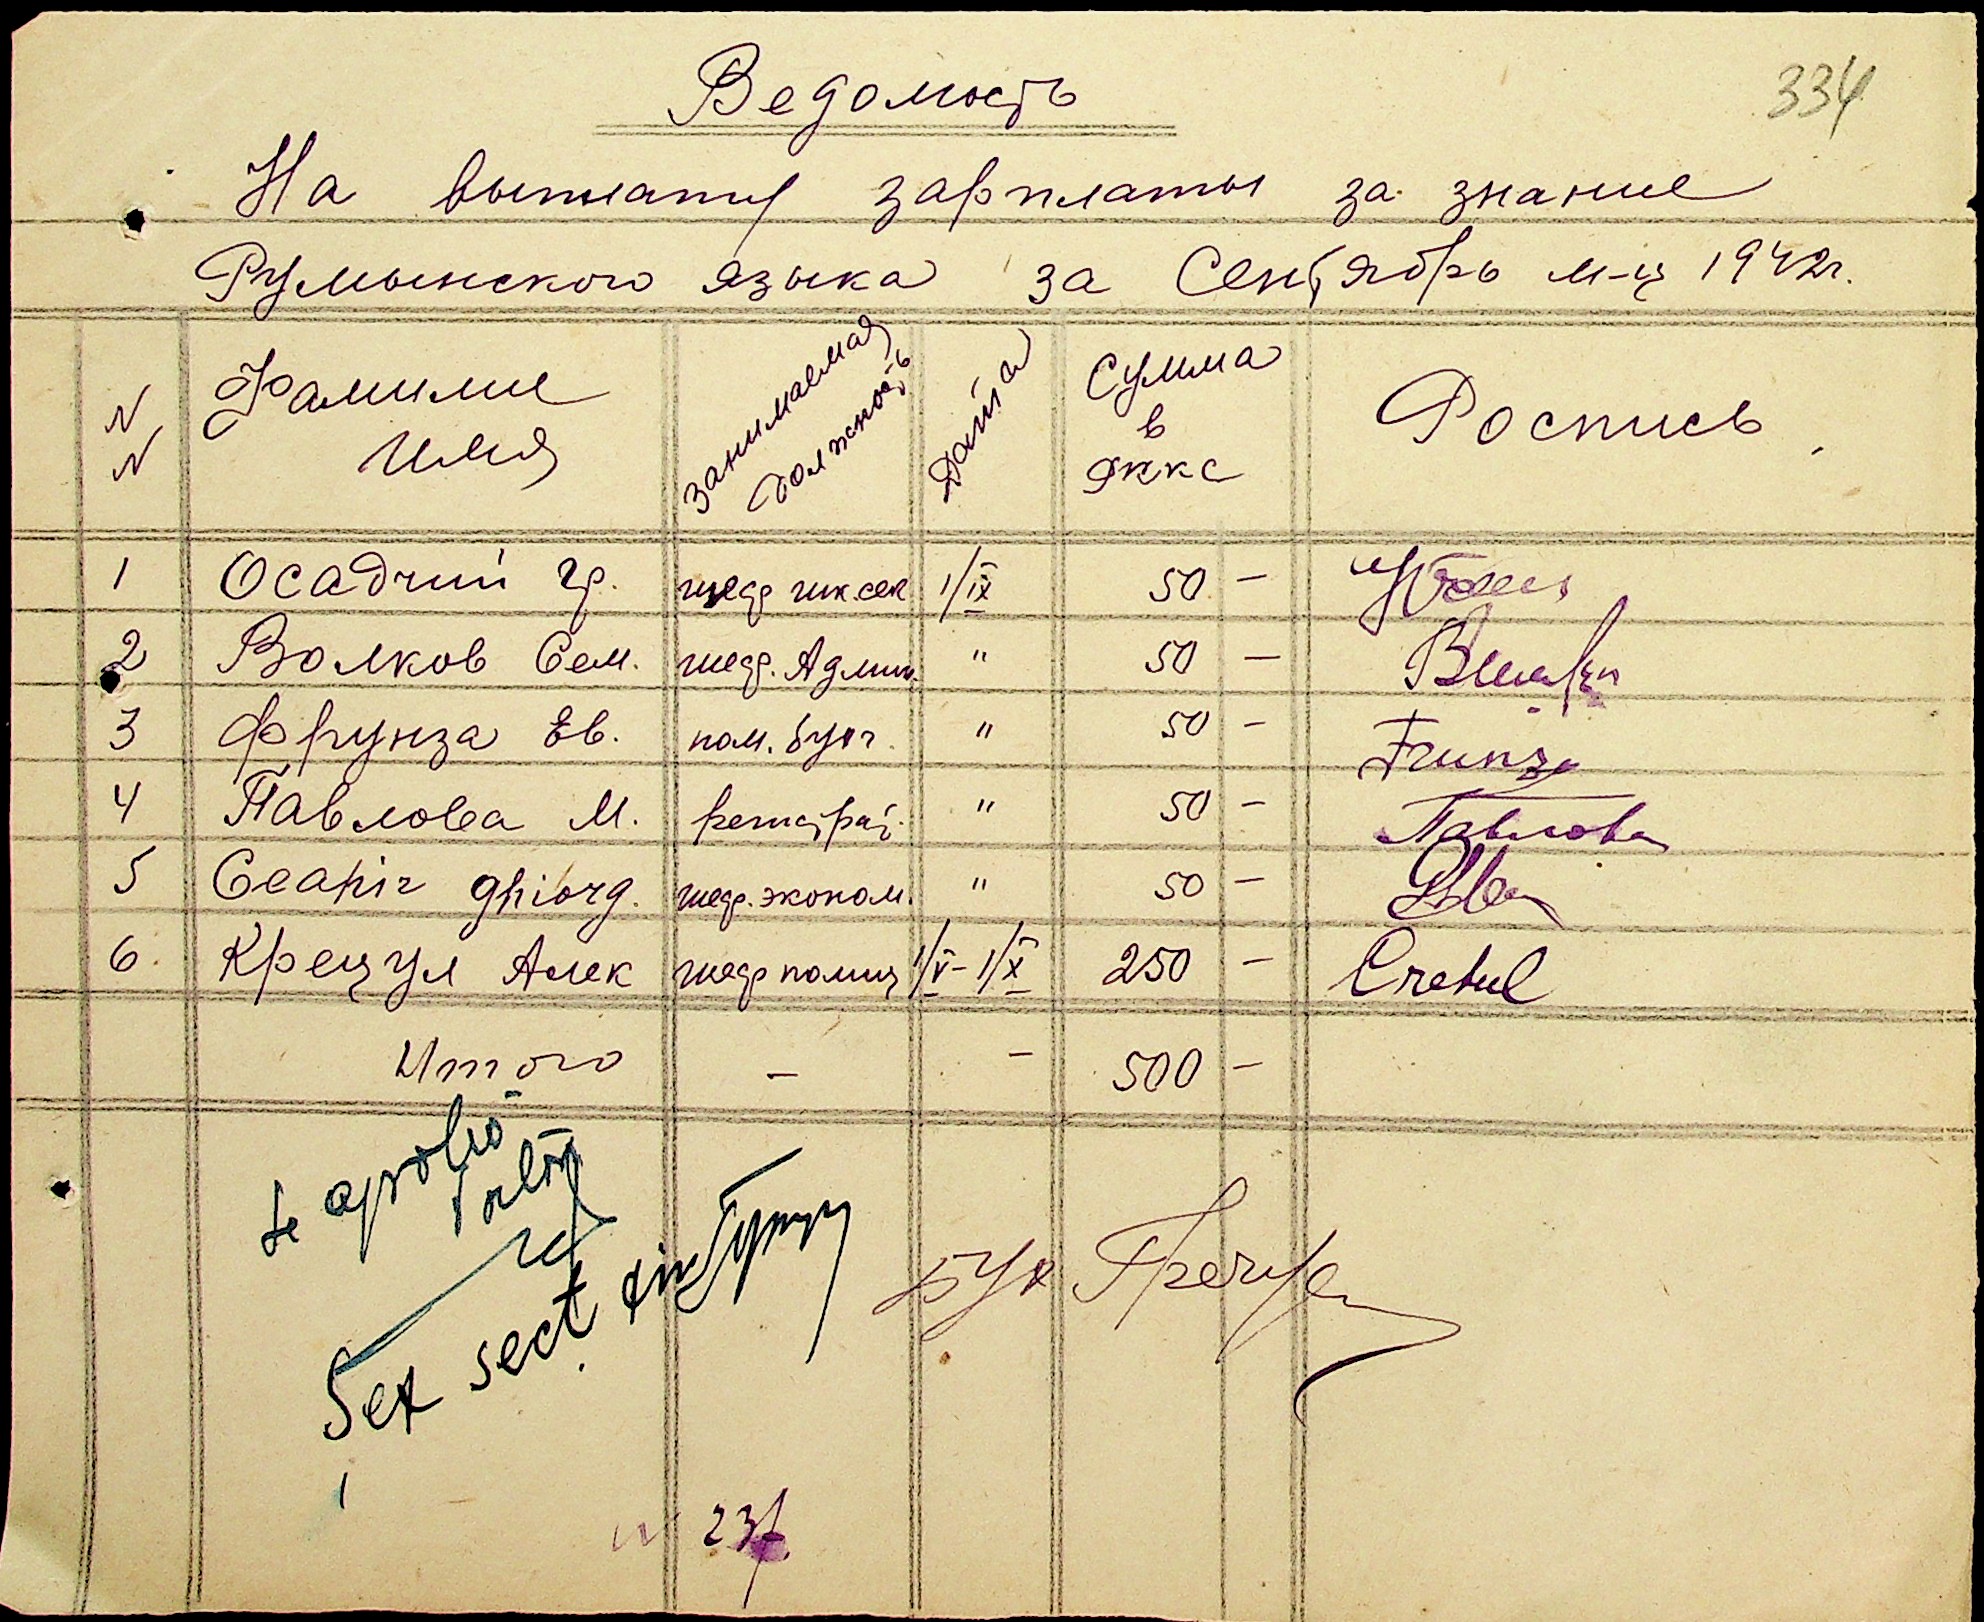 334
Ведомость
На выплату зарплаты за знание
Румынского языка за Сентябрь м-ц 1942г.
N N Фамилие Имя Занимаемая должность Дата Сумма в яккс Роспись
1 Осадчий Гр. шеф фик.сек 1/IX 50 –
2 Волков Сем. шеф. Админ. " 50 –
3 Фрунза Ев. пом. бухг. " 50 – Frunza
4 Павлова М. регистрат. " 50 – Павлова
5 ghiorg. шеф. эконом. " 50 –
6. Крецул Алек шеф полиц 1/V – 1/X 250 – Cretul
Итого – – 500 –
se aprobă
Sex sect.
Бух
237